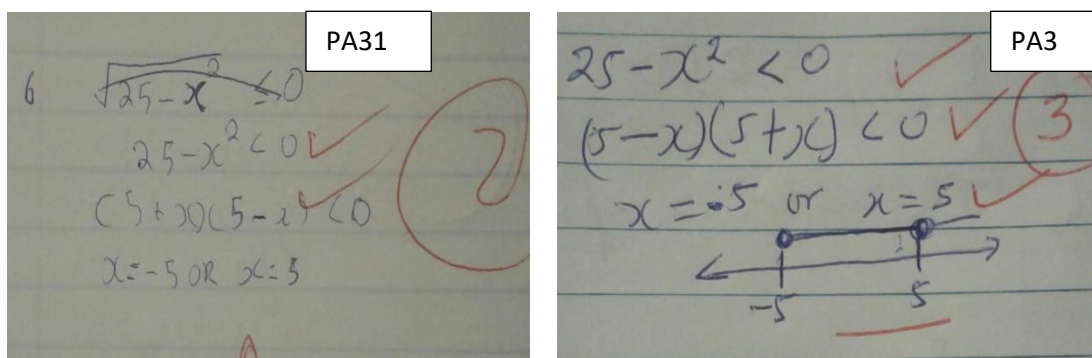 PA31
6 √25-x² ≤ 0
25-x² < 0
(5+x)(5-x) < 0
x=-5 OR x=5
2
PA3
25-x² < 0
(5-x)(5+x) < 0
3
x=-5 or x=5
-5 5